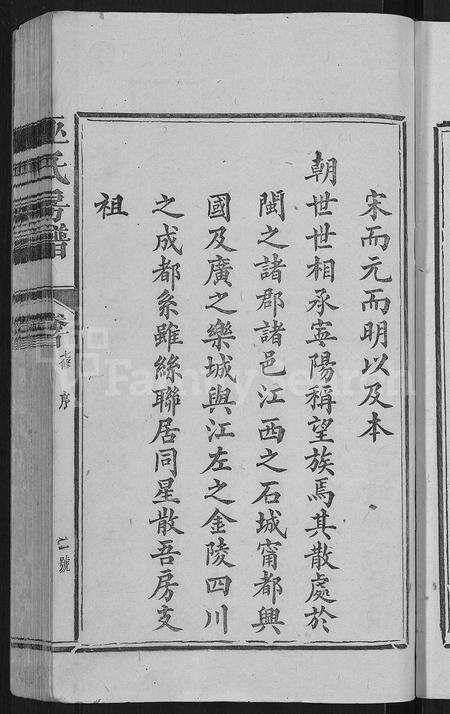 宋而元而明以及本
朝世世相承寧陽稱望族焉其散處於
閩之諸郡諸邑江西之石城甯都興
國及廣之樂城與江左之金陵四川
之成都系雖絲聯居同星散吾房支
祖
巫氏房譜
舊序
二號
FamilySearch